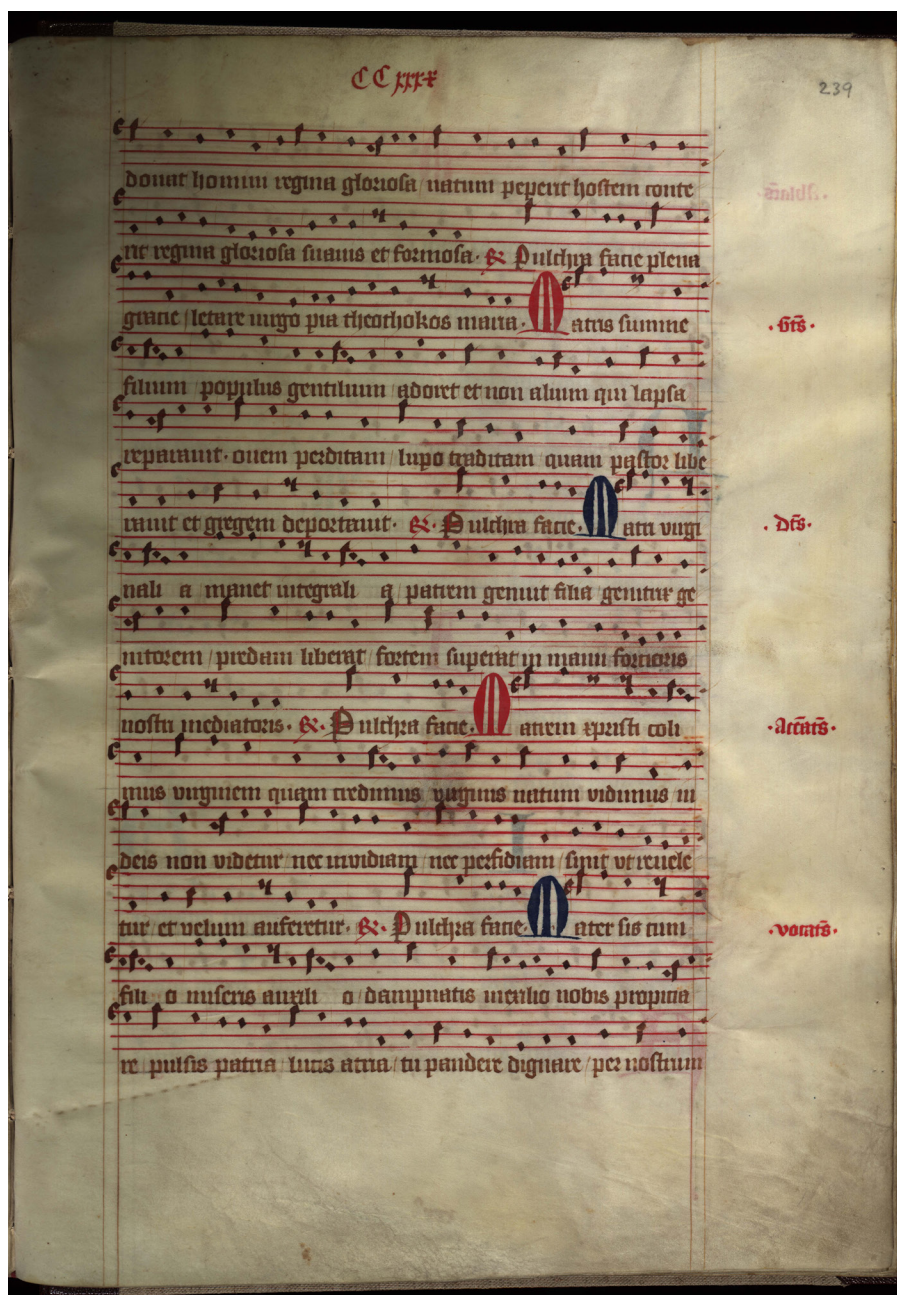 CCxxxx
239
donat homini regina gloriosa / natum peperit hostem conte
rit regina gloriosa suauis et formosa · R. Pulchra facie plena
gracie / letare uirgo pia theothokos maria · Matris summe
· Gt̄s ·
filium / populus gentilium / adoret et non alium qui lapsa
reparauit · ouem perditam / lupo traditam quam pastor libe
rauit et gregem deportauit · R. Pulchra facie · Matri virgi
· Dt̄s ·
nali a manet integrali a patrem genuit filia genitur ge
nitorem / predam liberat / fortem superat in manu fortioris
nostri mediatoris · R. Pulchra facie · Matrem xpristi coli
· Acc̄at̄s ·
mus virginem quam credimus virginis natum vidimus iu
deis non videtur / nec inuidiam / nec perfidiam / sinit vt reuele
tur et velum auferetur · R. Pulchra facie · Mater sis cum
· vocat̄s ·
fili o miseris auxili o / dampnatis
nobis propicia
re pulsis patria / lucis atria / tu pandere dignare / per nostrum